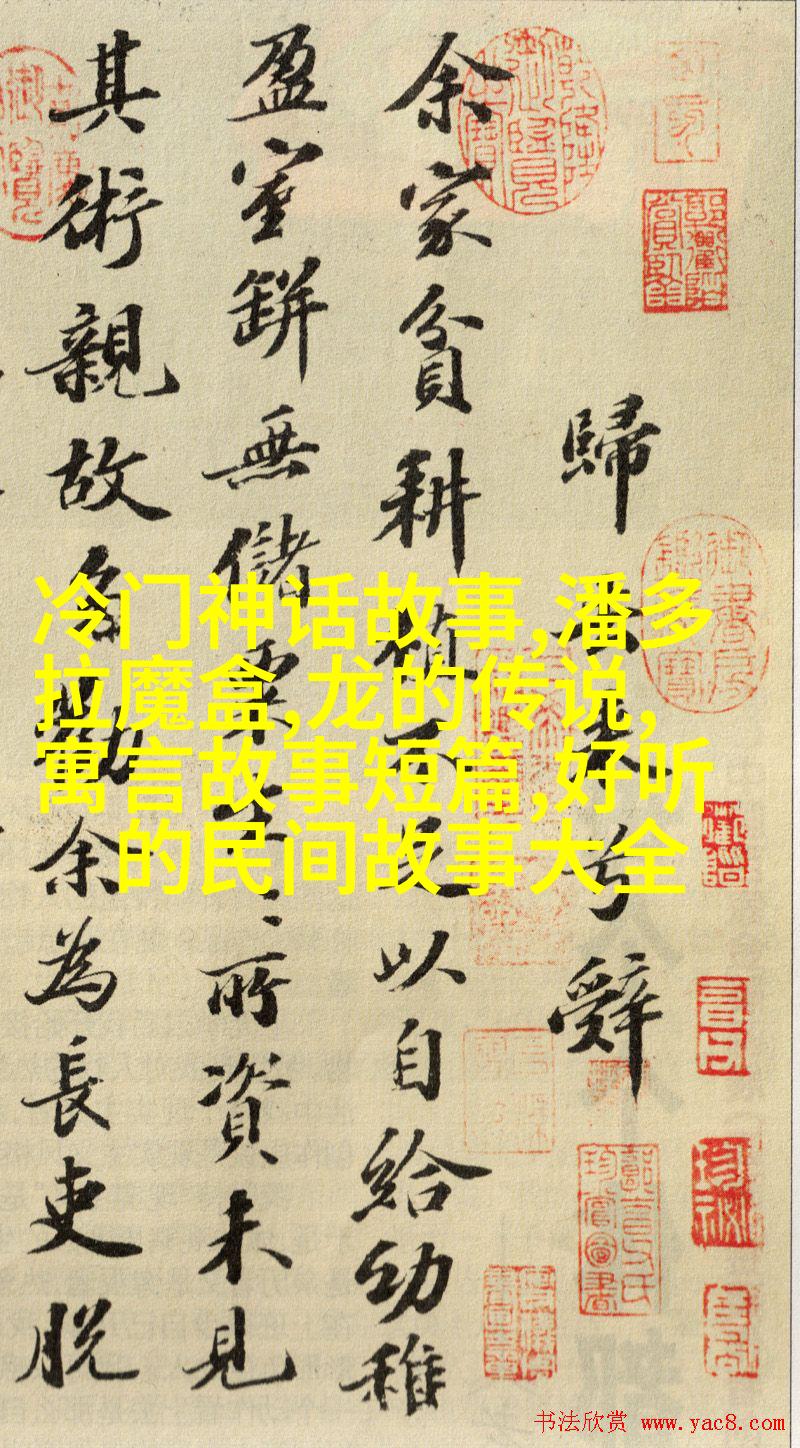 歸去來兮辭
余家貧耕植不足以自給幼稚
盈室缾無儲粟生〻所資未見
其術親故多勸余為長吏脫
冷门神话故事,潘多
拉魔盒,龙的传说,
寓言故事短篇,好听
的民间故事大全
书法欣赏 www.yac8.com